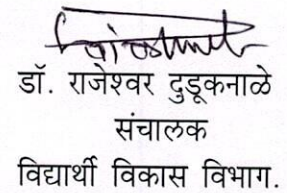 डॉ. राजेश्वर दुडूकनाळे
संचालक
विद्यार्थी विकास विभाग.